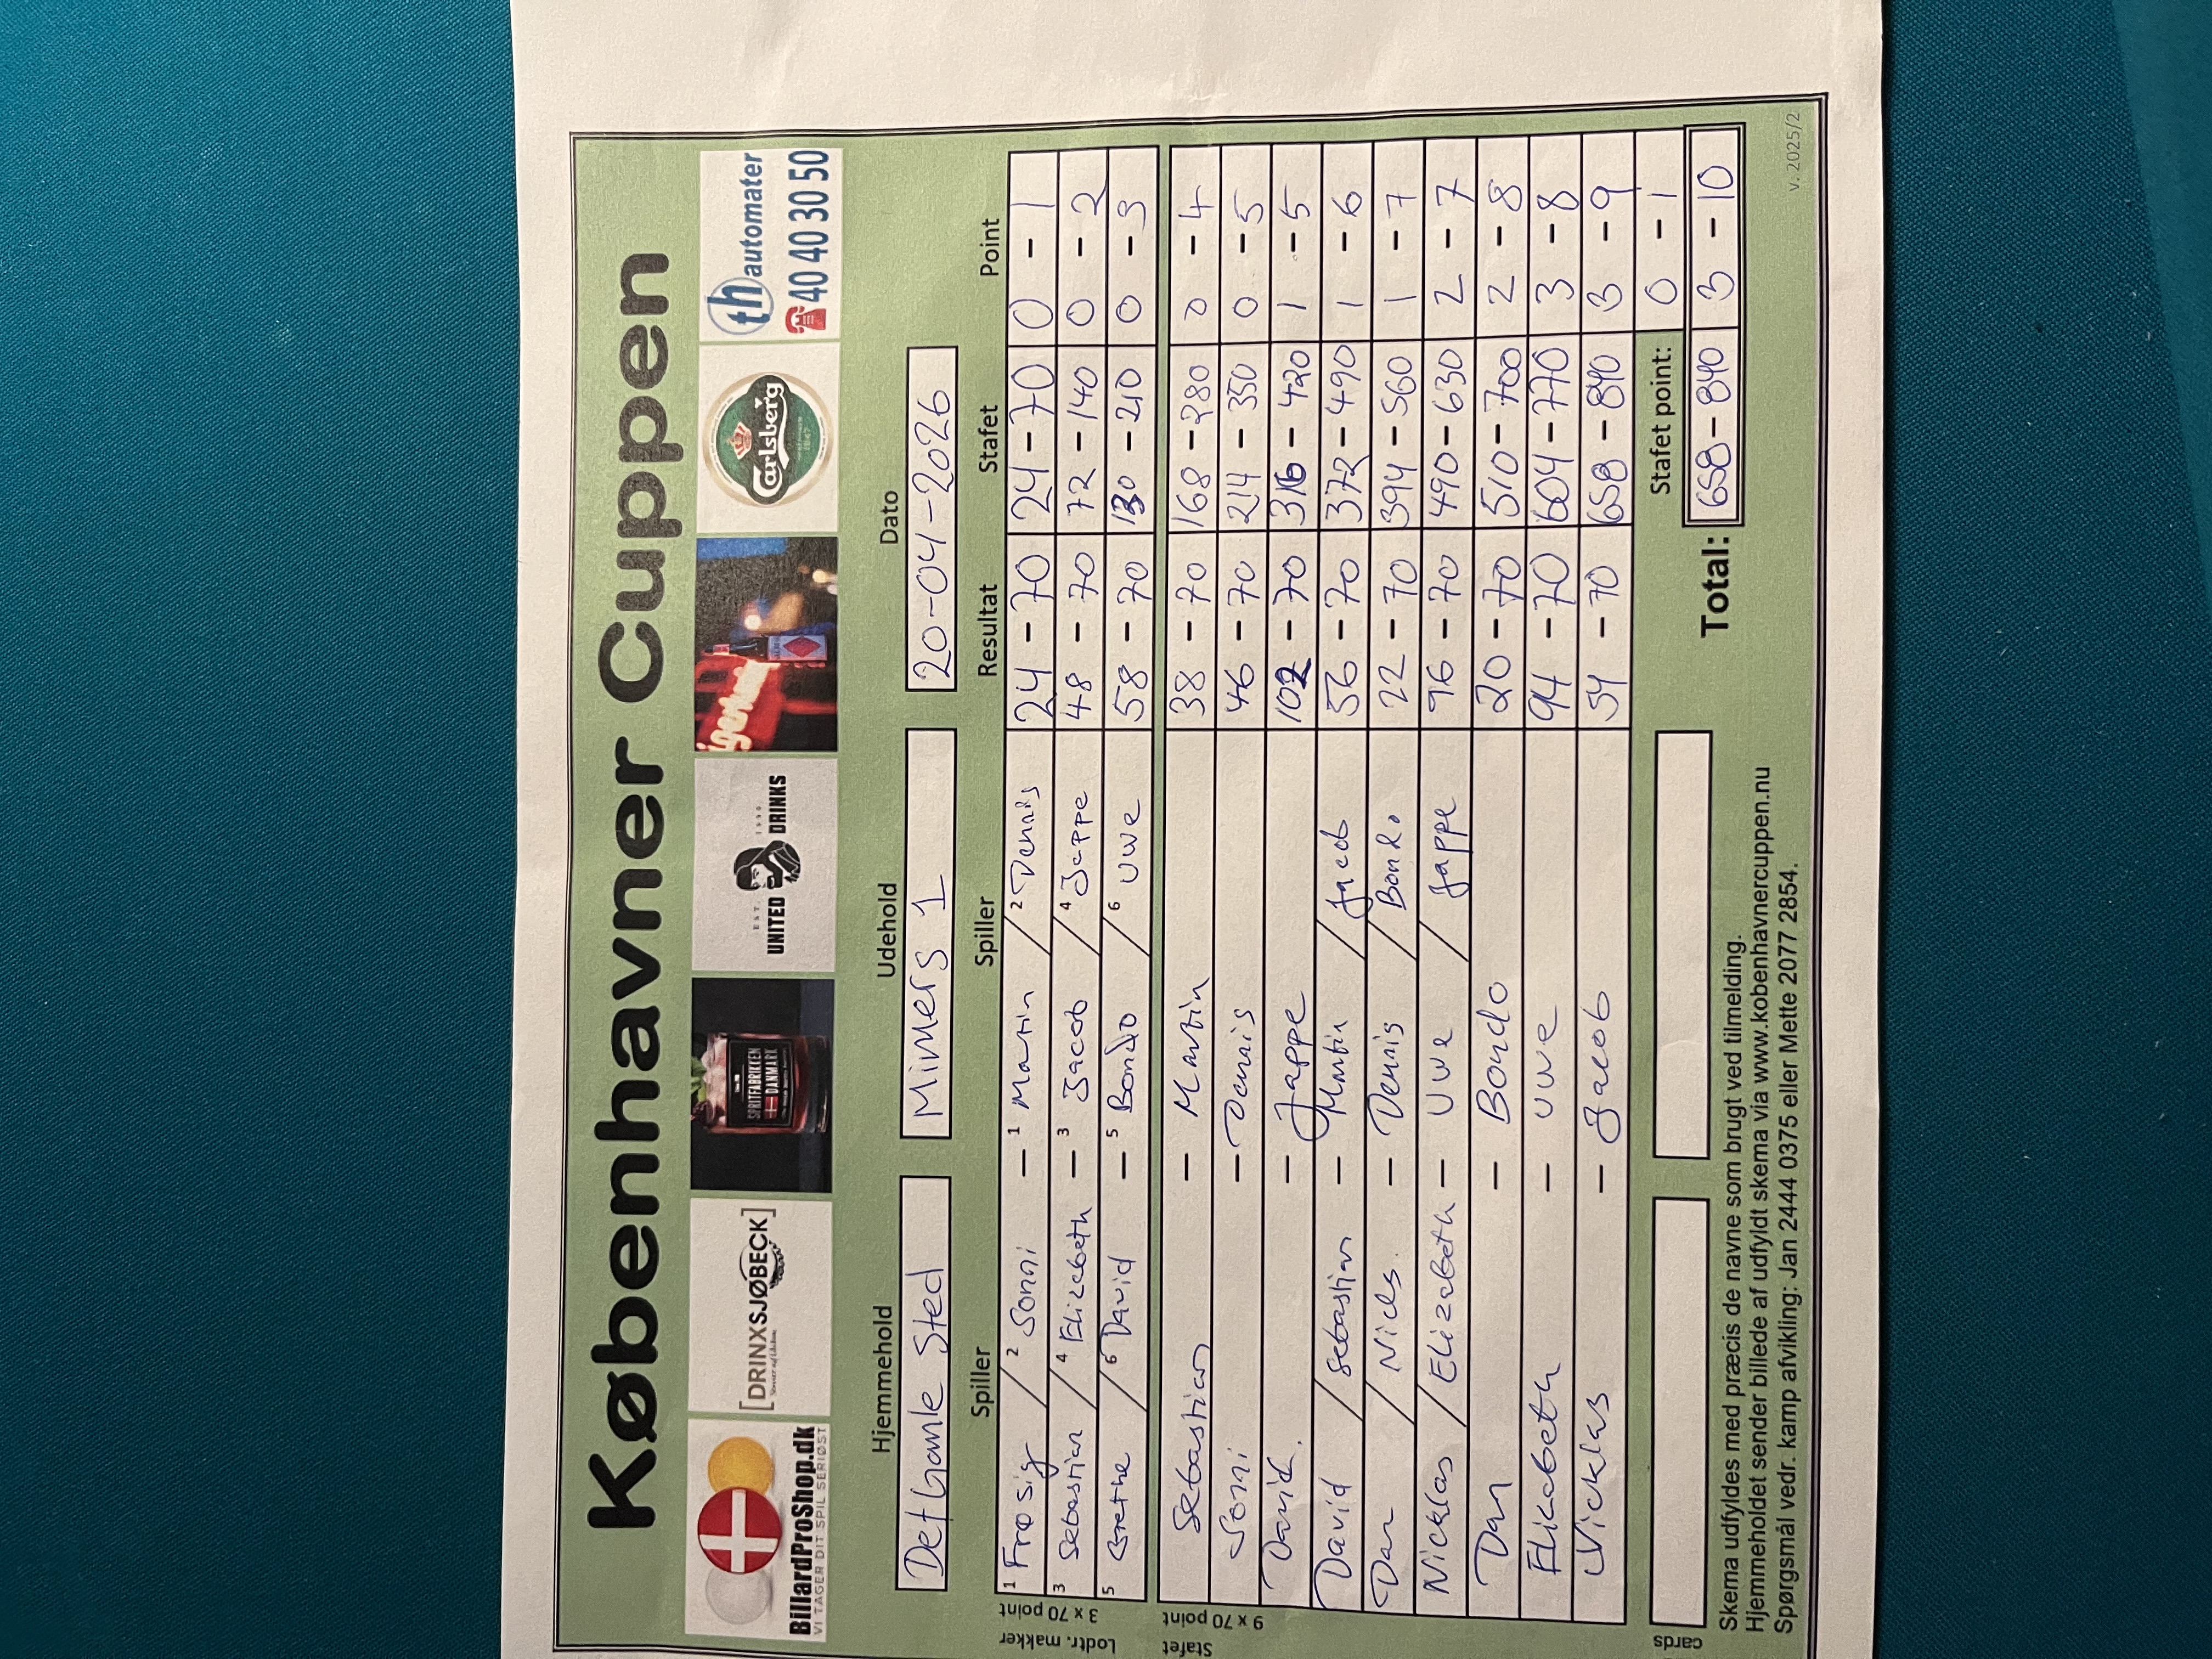 Københavner Cuppen
BillardProShop.dk
VI TAGER DIT SPIL SERIØST
[DRINXSJØBECK]
SPRITFABRIKKEN
DANMARK
EST. 1990
UNITED DRINKS
Carlsberg
1847
th automater
40 40 30 50
Hjemmehold Udehold Dato
Det Gamle Sted Mimers 1 20-04-2026
Spiller Spiller Resultat Stafet Point
Lodtr. makker
3 x 70 point
1 Frøsig / 2 Sonni – 1 Martin / 2 Dennis 24 – 70 24 – 70 0 – 1
3 Sebastian / 4 Elizabeth – 3 Jacob / 4 Jeppe 48 – 70 72 – 140 0 – 2
5 Grethe / 6 David – 5 Bondo / 6 Uwe 58 – 70 130 – 210 0 – 3
Stafet
9 x 70 point
Sebastian – Martin 38 – 70 168 – 280 0 – 4
Sonni – Dennis 46 – 70 214 – 350 0 – 5
David – Jeppe 102 – 70 316 – 420 1 – 5
David / Sebastian – Martin / Jacob 56 – 70 372 – 490 1 – 6
Dan / Niels – Dennis / Bondo 22 – 70 394 – 560 1 – 7
Nicklas / Elizabeth – Uwe / Jeppe 96 – 70 490 – 630 2 – 7
Dan – Bondo 20 – 70 510 – 700 2 – 8
Elizabeth – Uwe 94 – 70 604 – 770 3 – 8
Nicklas – Jacob 54 – 70 658 – 840 3 – 9
Stafet point: 0 – 1
cards
Total: 658 – 840 3 – 10
Skema udfyldes med præcis de navne som brugt ved tilmelding.
Hjemmeholdet sender billede af udfyldt skema via www.kobenhavnercuppen.nu
Spørgsmål vedr. kamp afvikling: Jan 2444 0375 eller Mette 2077 2854.
v. 2025/2